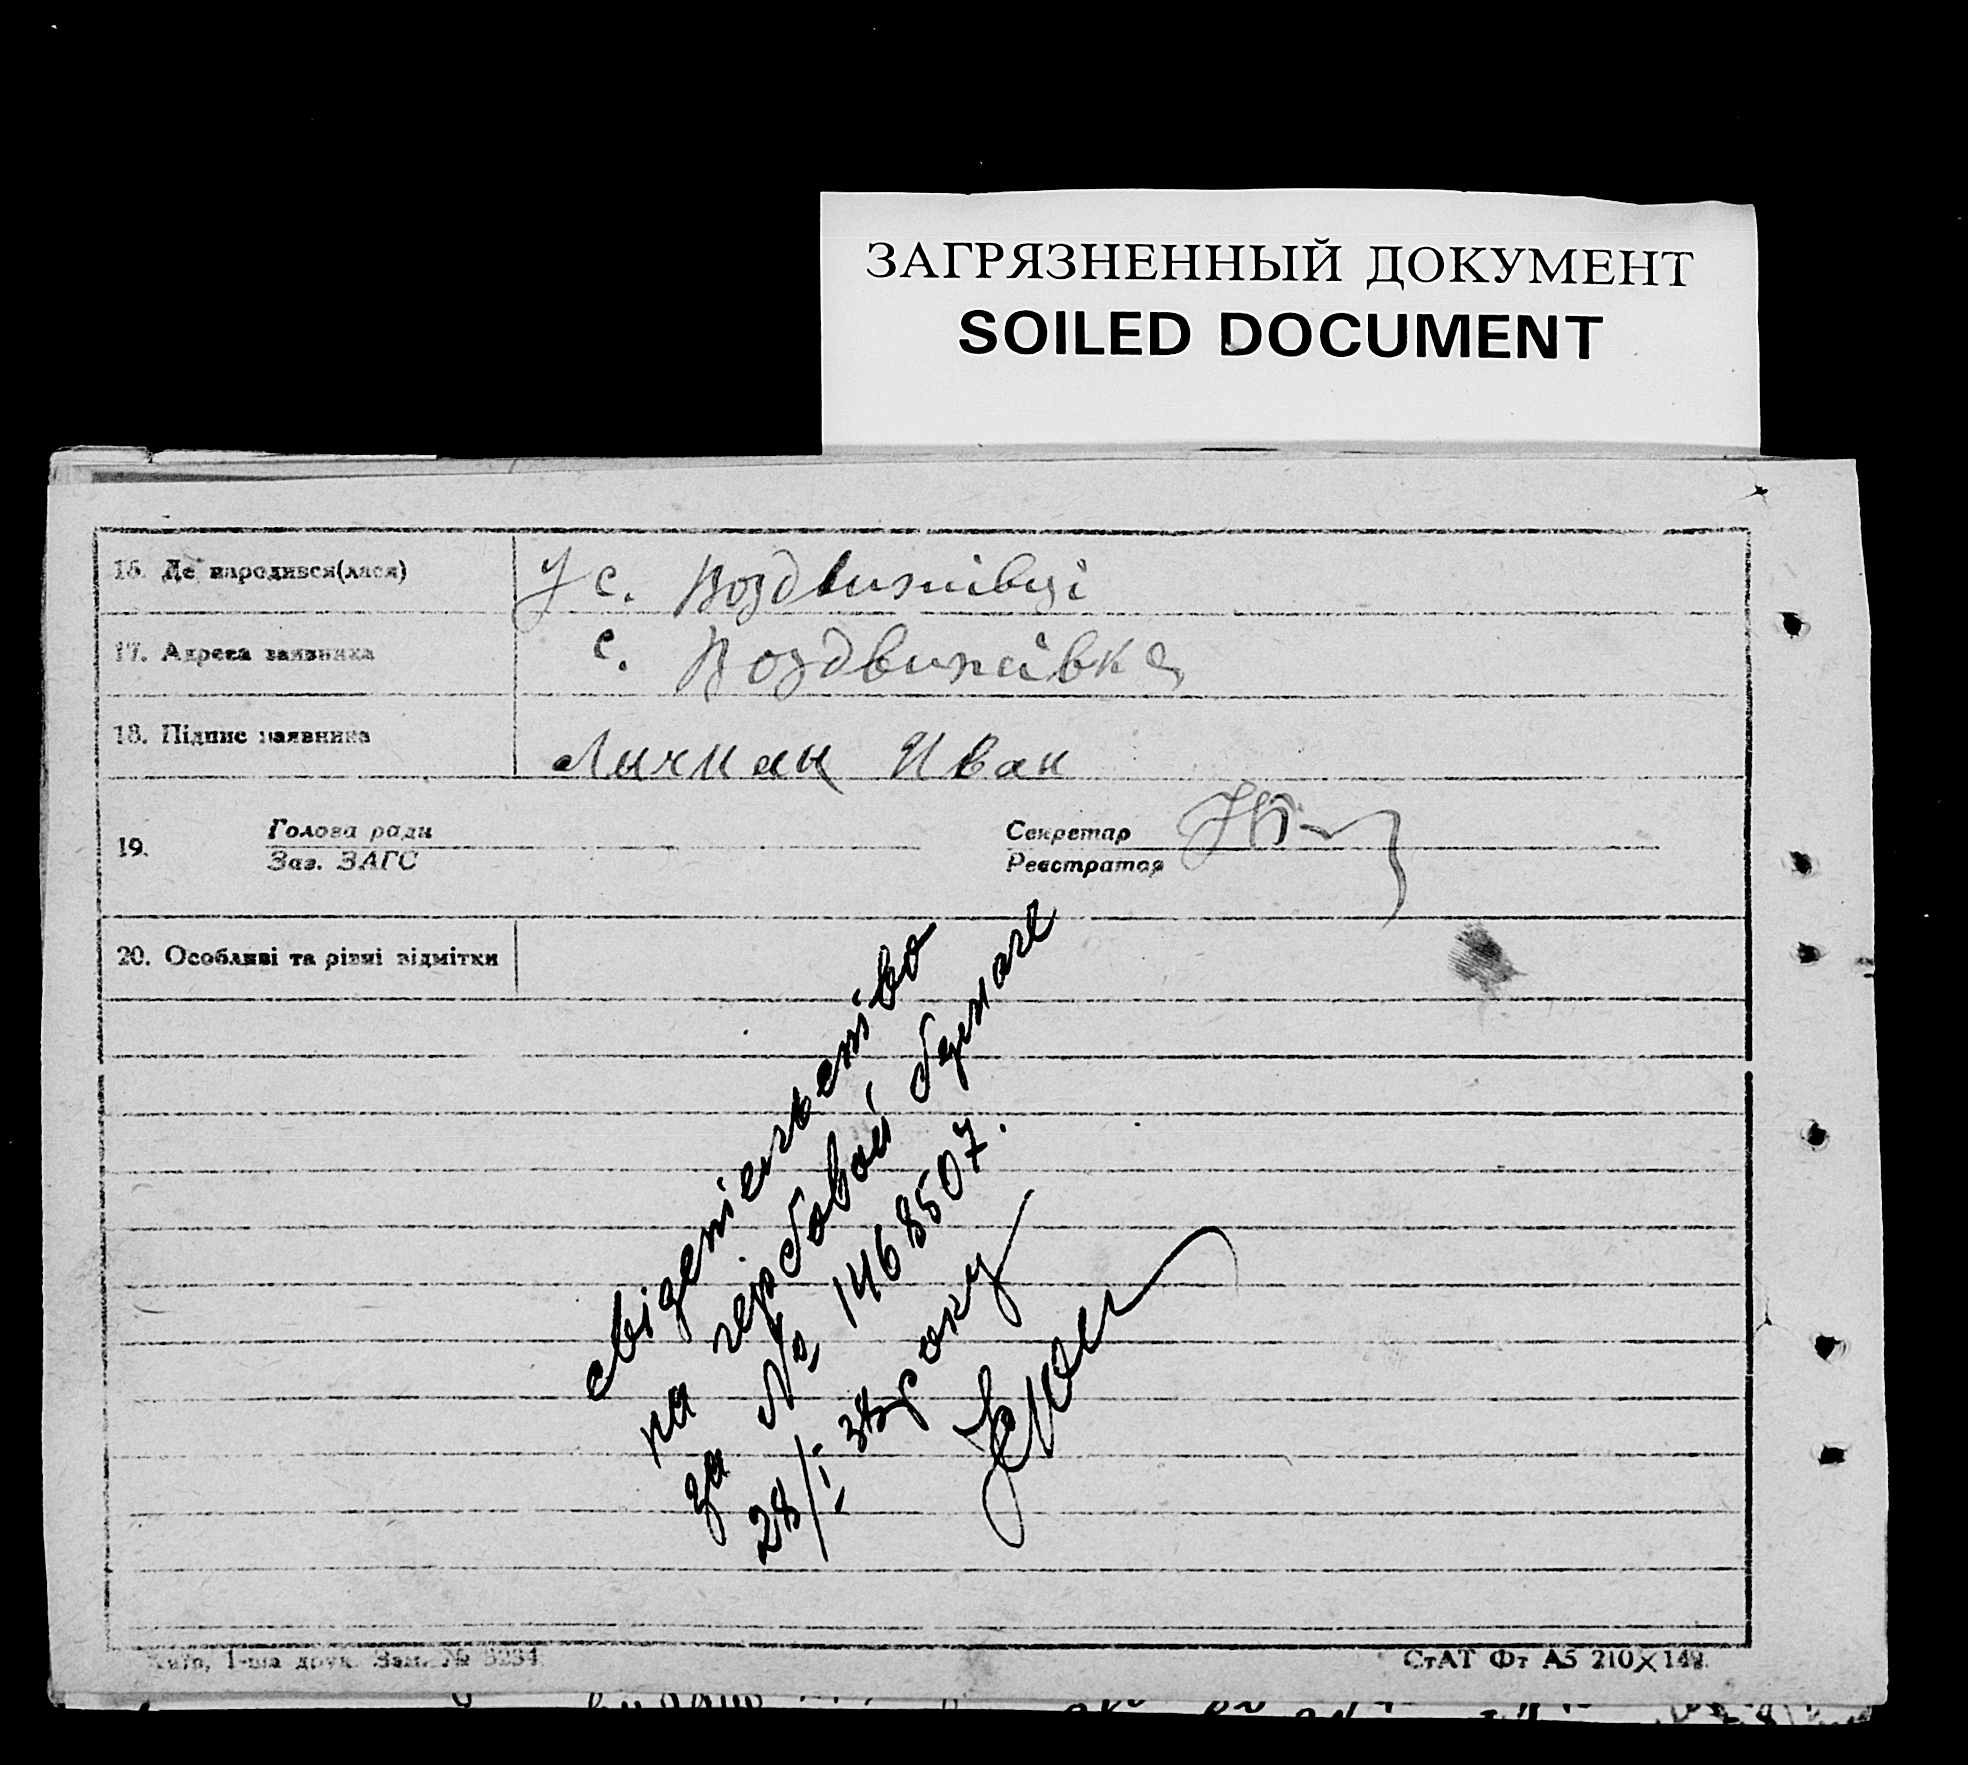 ЗАГРЯЗНЕННЫЙ ДОКУМЕНТ
SOILED DOCUMENT
16. Де народився(лася)
У с. Воздвижівці
17. Адреса заявника
с. Воздвижівка
18. Підпис заявника
Личман Иван
19.
Голова ради
Зав. ЗАГС
Секретар
Реєстратор
20. Особливі та різні відмітки
свідетільство
на гербовой бумаге
за № 1468507.
28/I року
Київ, 1-ша друк. Зам. № 5234
СтАТ Фт А5 210×149.